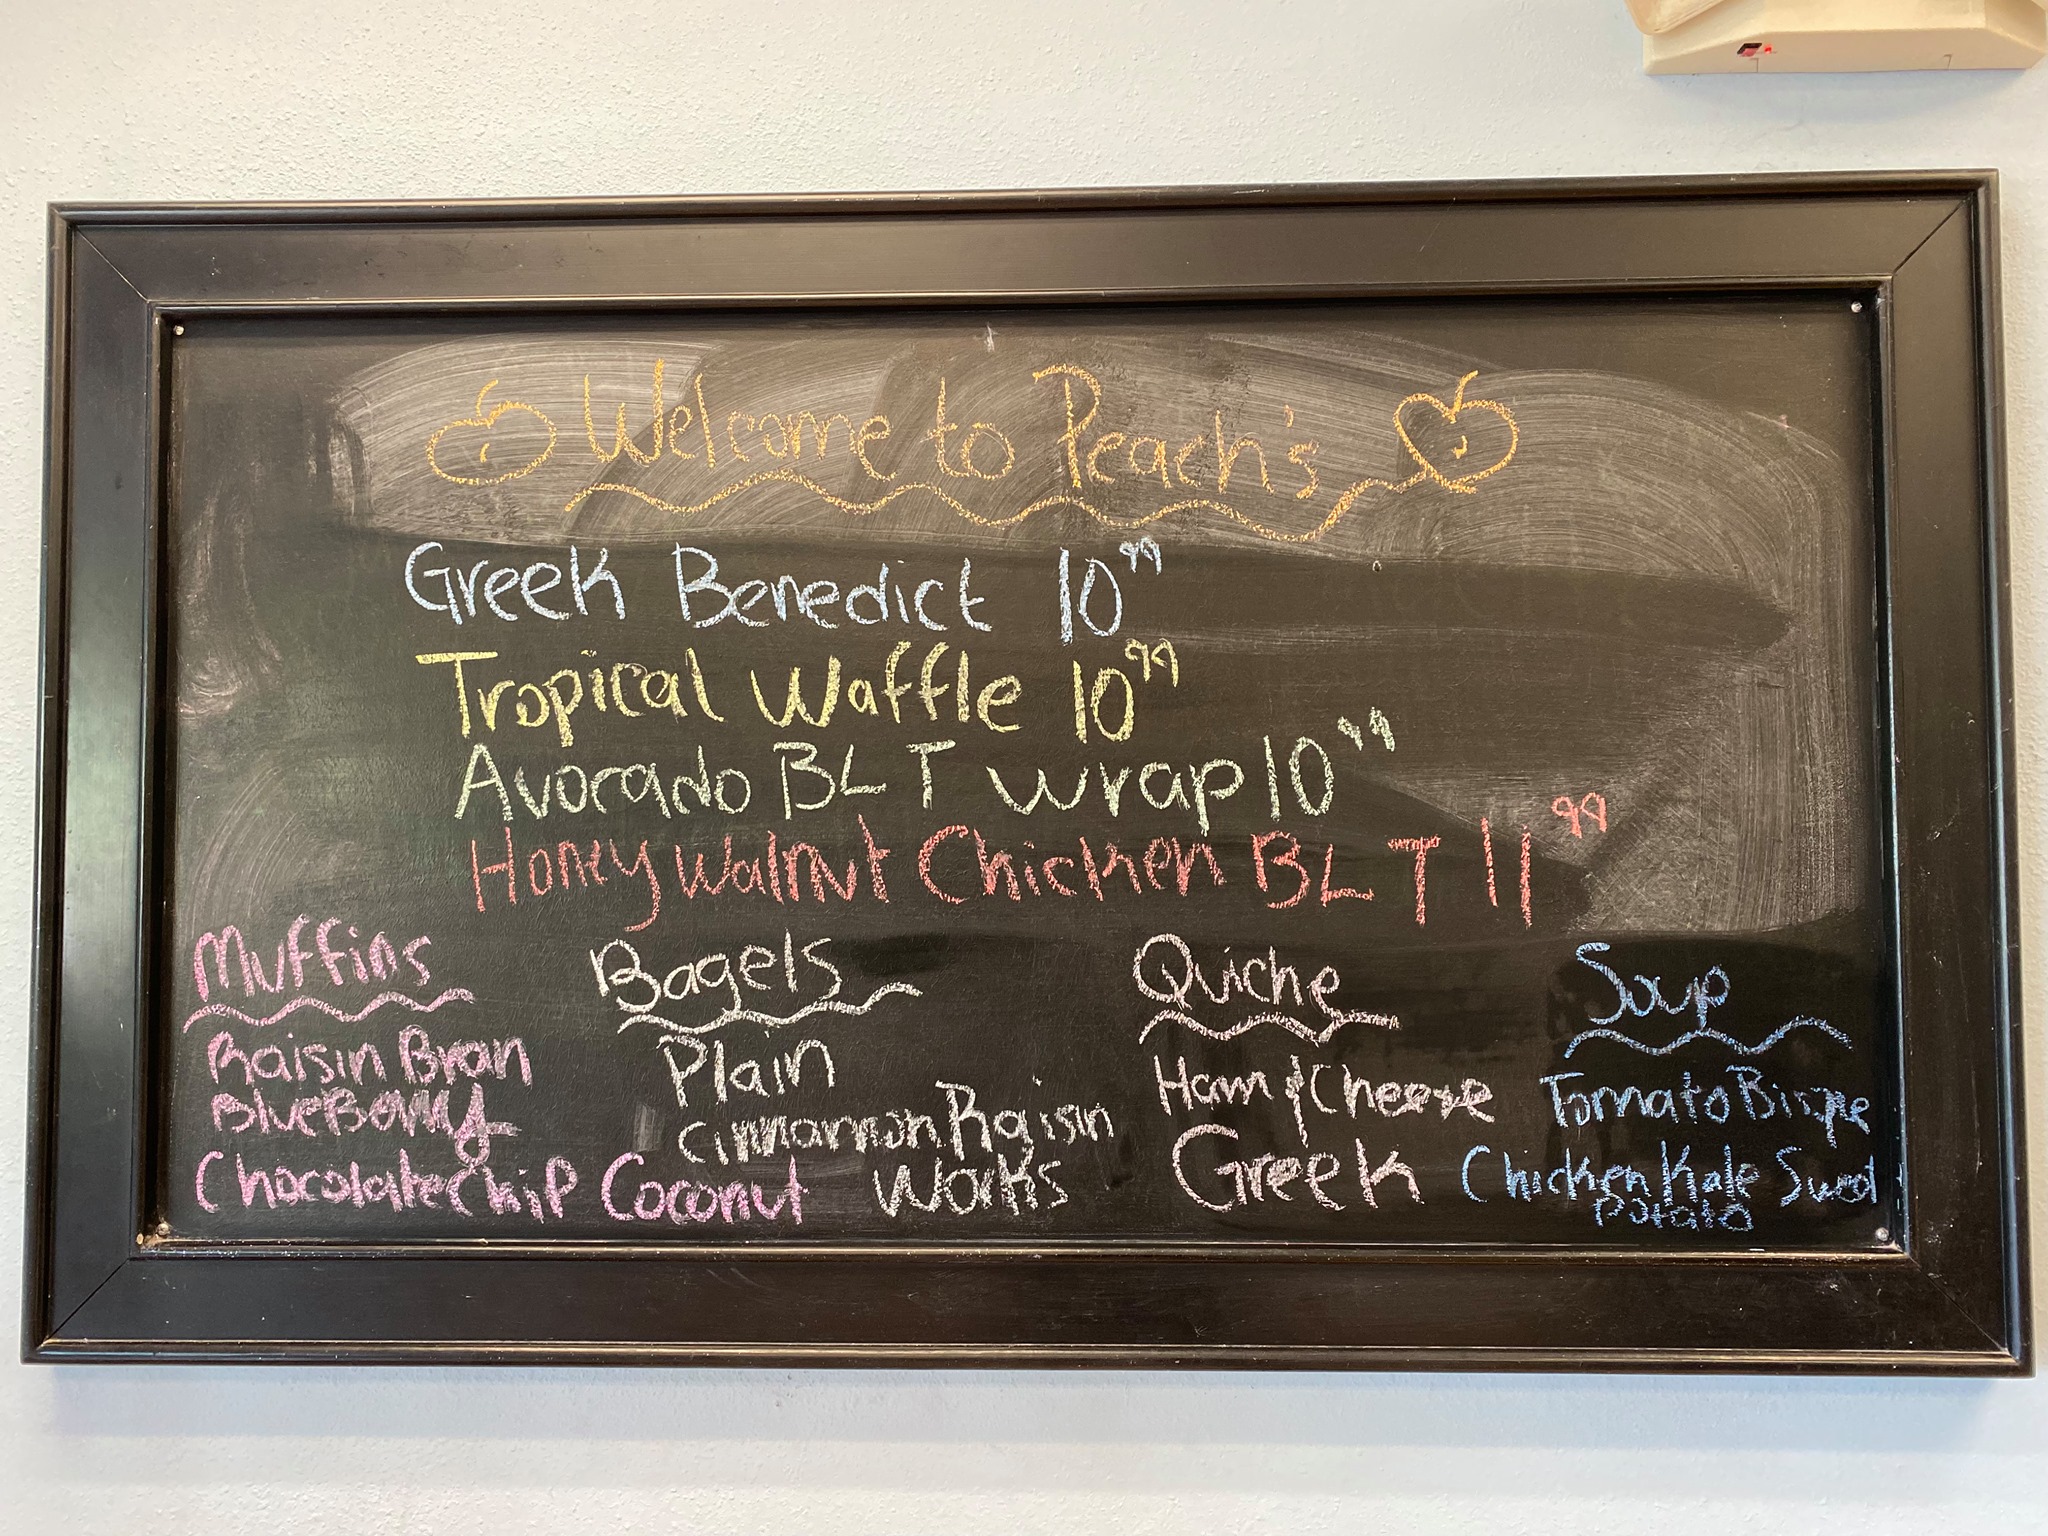 Welcome to Peach's
Greek Benedict 10⁹⁹
Tropical Waffle 10⁹⁹
Avocado BLT wrap 10⁹⁹
Honey Walnut Chicken BLT 11⁹⁹
Muffins
Raisin Bran
BlueBerry
Chocolate Chip Coconut
Bagels
Plain
Cinnamon Raisin
Works
Quiche
Ham & Cheese
Greek
Soup
Tomato Bisque
Chicken Kale Sweet
Potato